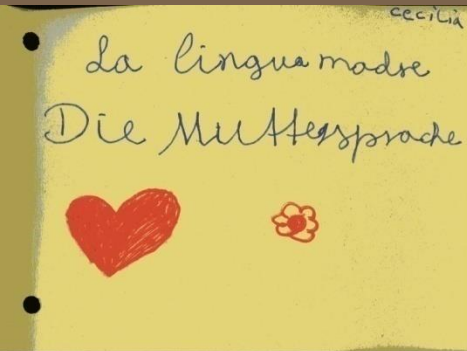 cecilia
La lingua madre
Die Muttersprache